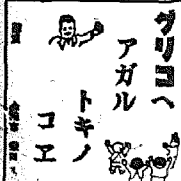 グリコヘ
アガル
トキノ
コエ